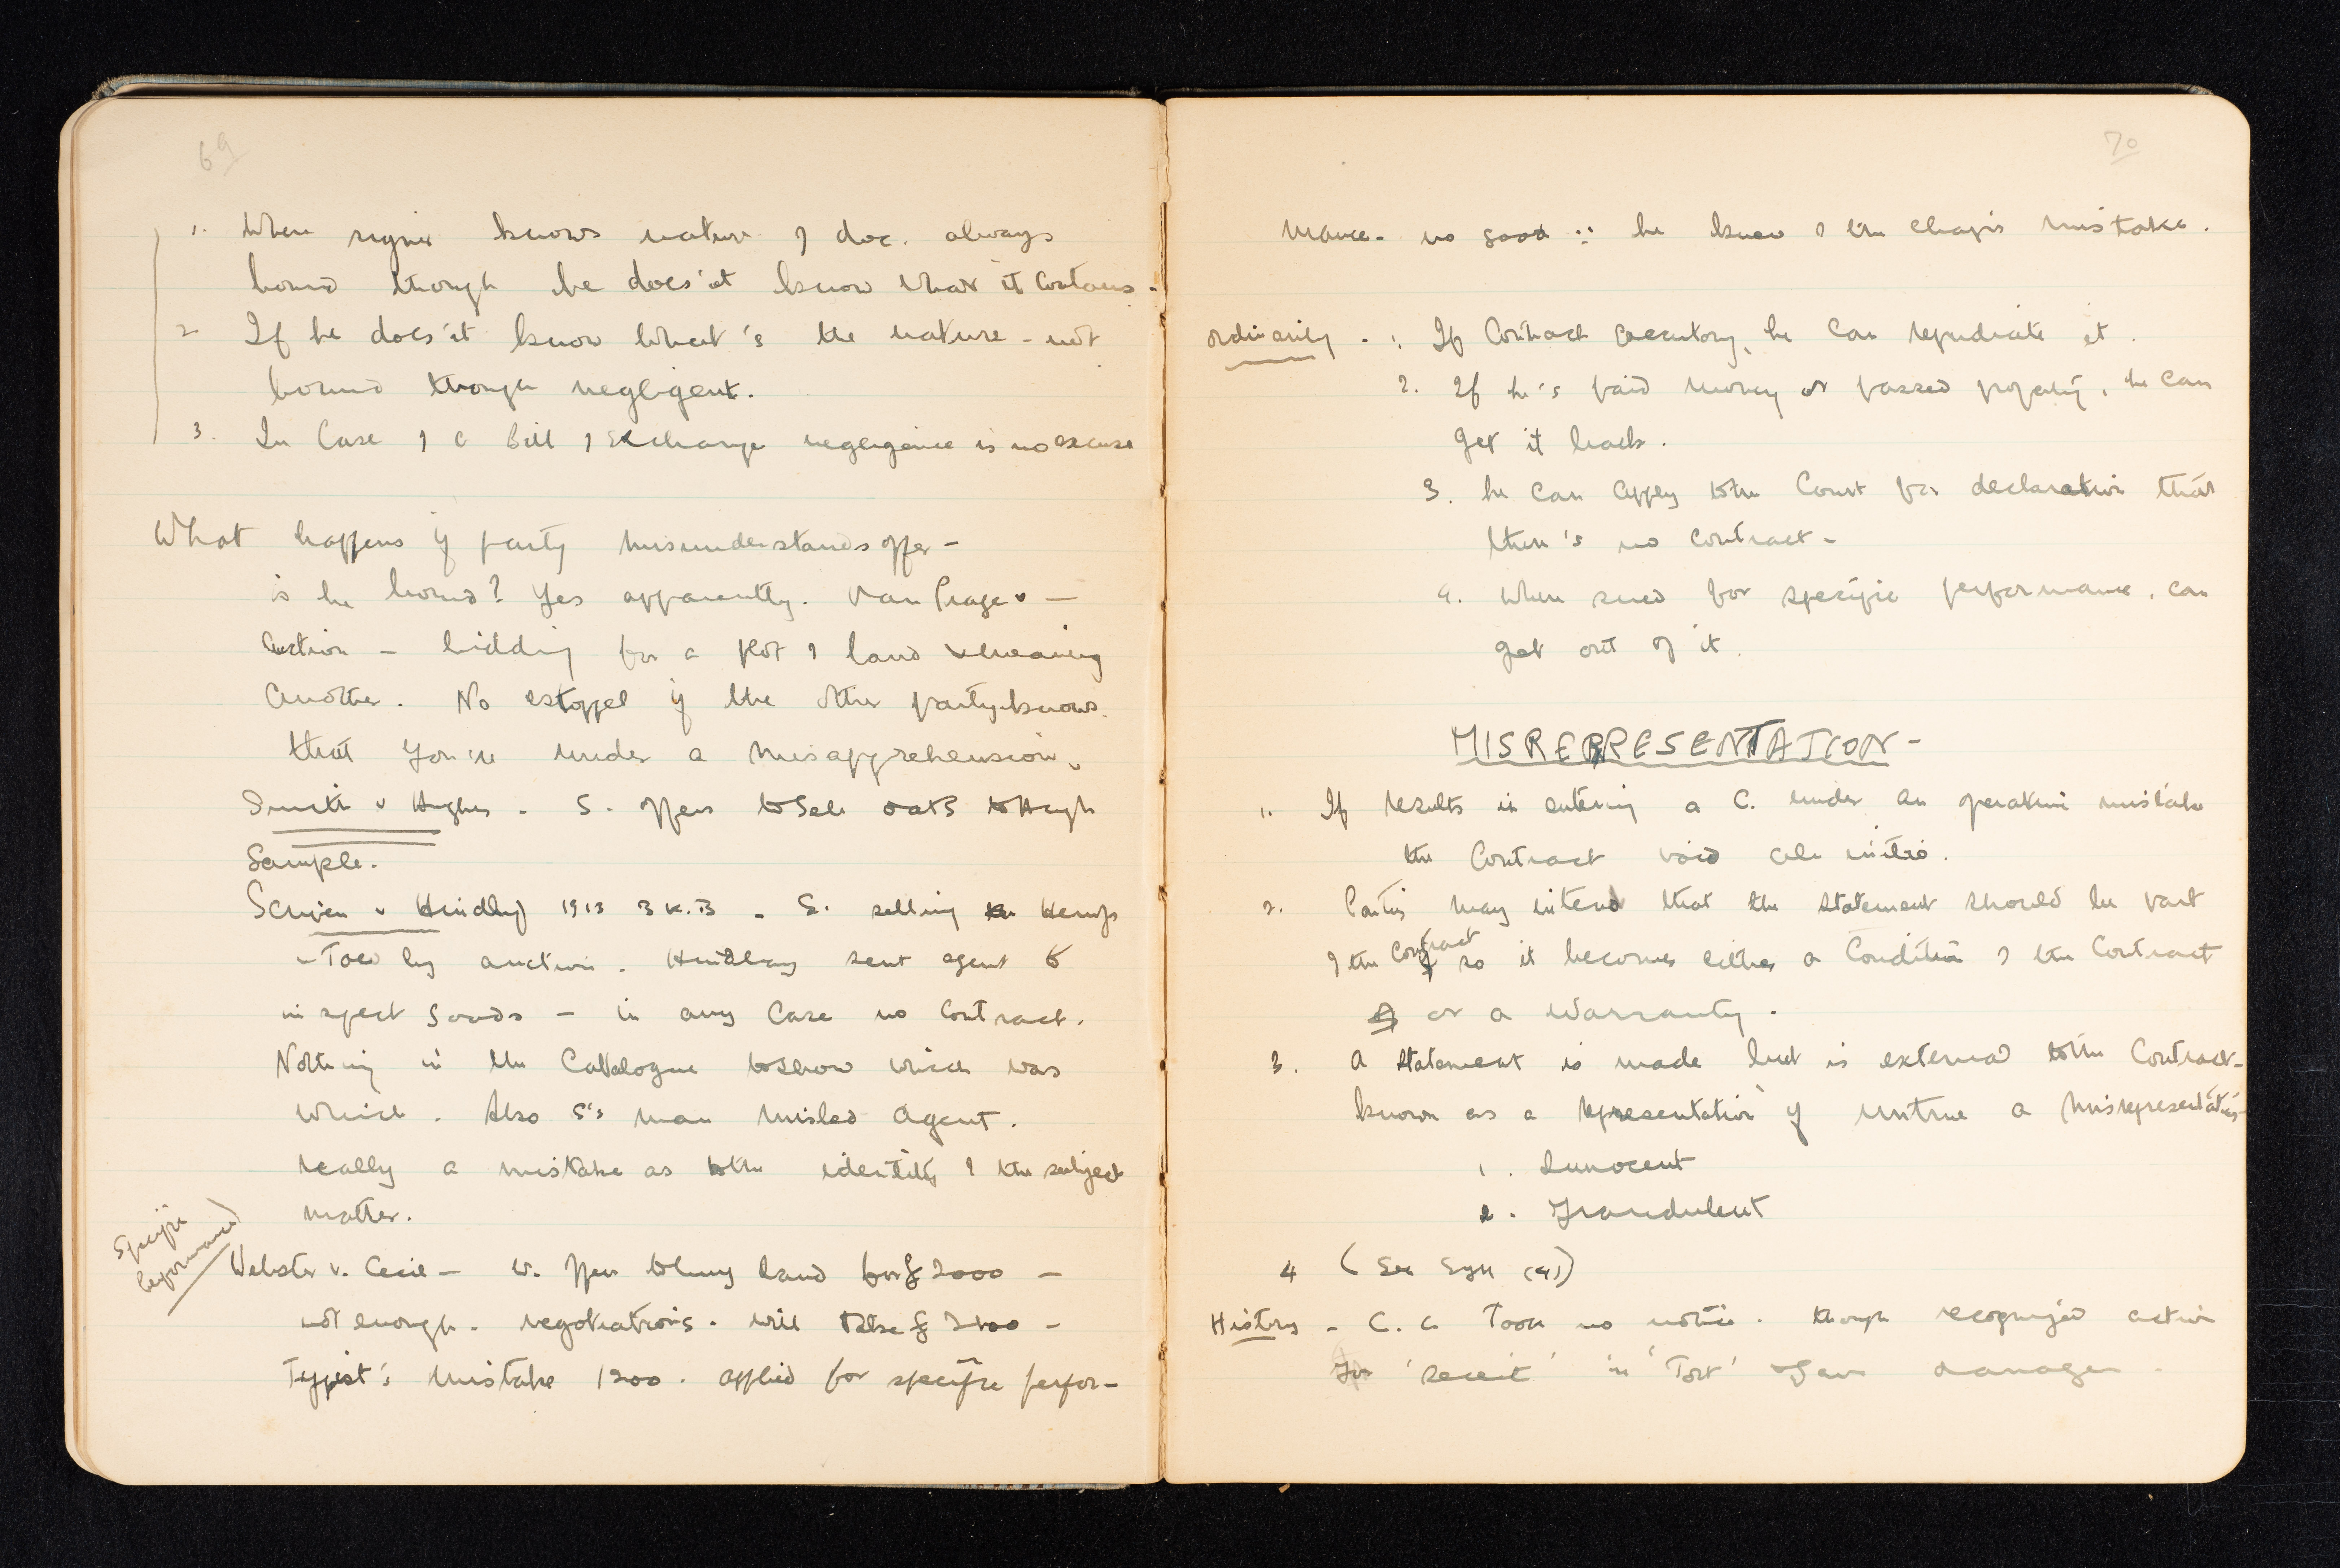 69
1. When signer knows nature of doc. always
bound though he does'nt know what it contains.
2. If he does'nt know what's the nature - not
bound though negligent.
3. In Case of a Bill of Exchange negligence is no excuse
What happens if party misunderstands offer -
is he bound? Yes apparently. Van Praagh v —
Auction - bidding for a plot of land & meaning
another. No estoppel if the other party knows
that you're under a misapprehension.
Smith v Hughes - S. offers to sell oats to Hugh
Sample.
Scriven v Hindley 1913 3 K.B - S. selling Hemp
- Tow by auction. Hindley sent agent to
inspect goods - in any case no contract.
Nothing in the Catalogue to show which was
which. Also S's man misled agent.
really a mistake as to the identity of the subject
matter.
Specific
Performance
Webster v. Cecil - W. offers to buy land for £2000 -
not enough. negotiations. will take £
Typist's mistake 1200. applied for specific perfor-
70
mance - no good ∵ he knew of the mistake.
ordinarily - 1. If Contract executory, he can repudiate it.
2. If he's paid money or passed property, he can
get it back.
3. he can apply to the Court for declaration that
there's no contract -
4. When sued for specific performance, can
get out of it.
MISREPRESENTATION -
1. If results in entering a C. under an operative mistake
the Contract void ab initio.
2. Parties may intend that the statement should be part
of the contract so it becomes either a Condition of the Contract
or a Warranty.
3. A statement is made but is external to the Contract -
known as a representation if untrue a misrepresentation
1. Innocent
2. Fraudulent
4 (See Syll (4))
History - C. L. Took no notice. though recognized action
for 'deceit' in 'Tort' & gave damages -